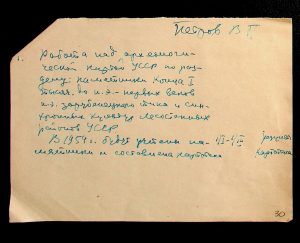 Петров В П
1. Работа над археологи-
ческой картой УССР по раз-
делу: памятники конца I
тысяч. до н.э. - первых веков
н.э. зарубинецкого типа и син-
хронных культур лесостепных
районов УССР
В 1959 г. будут учтены па- VII-VIII
мятники и составлена картотека картотека
30